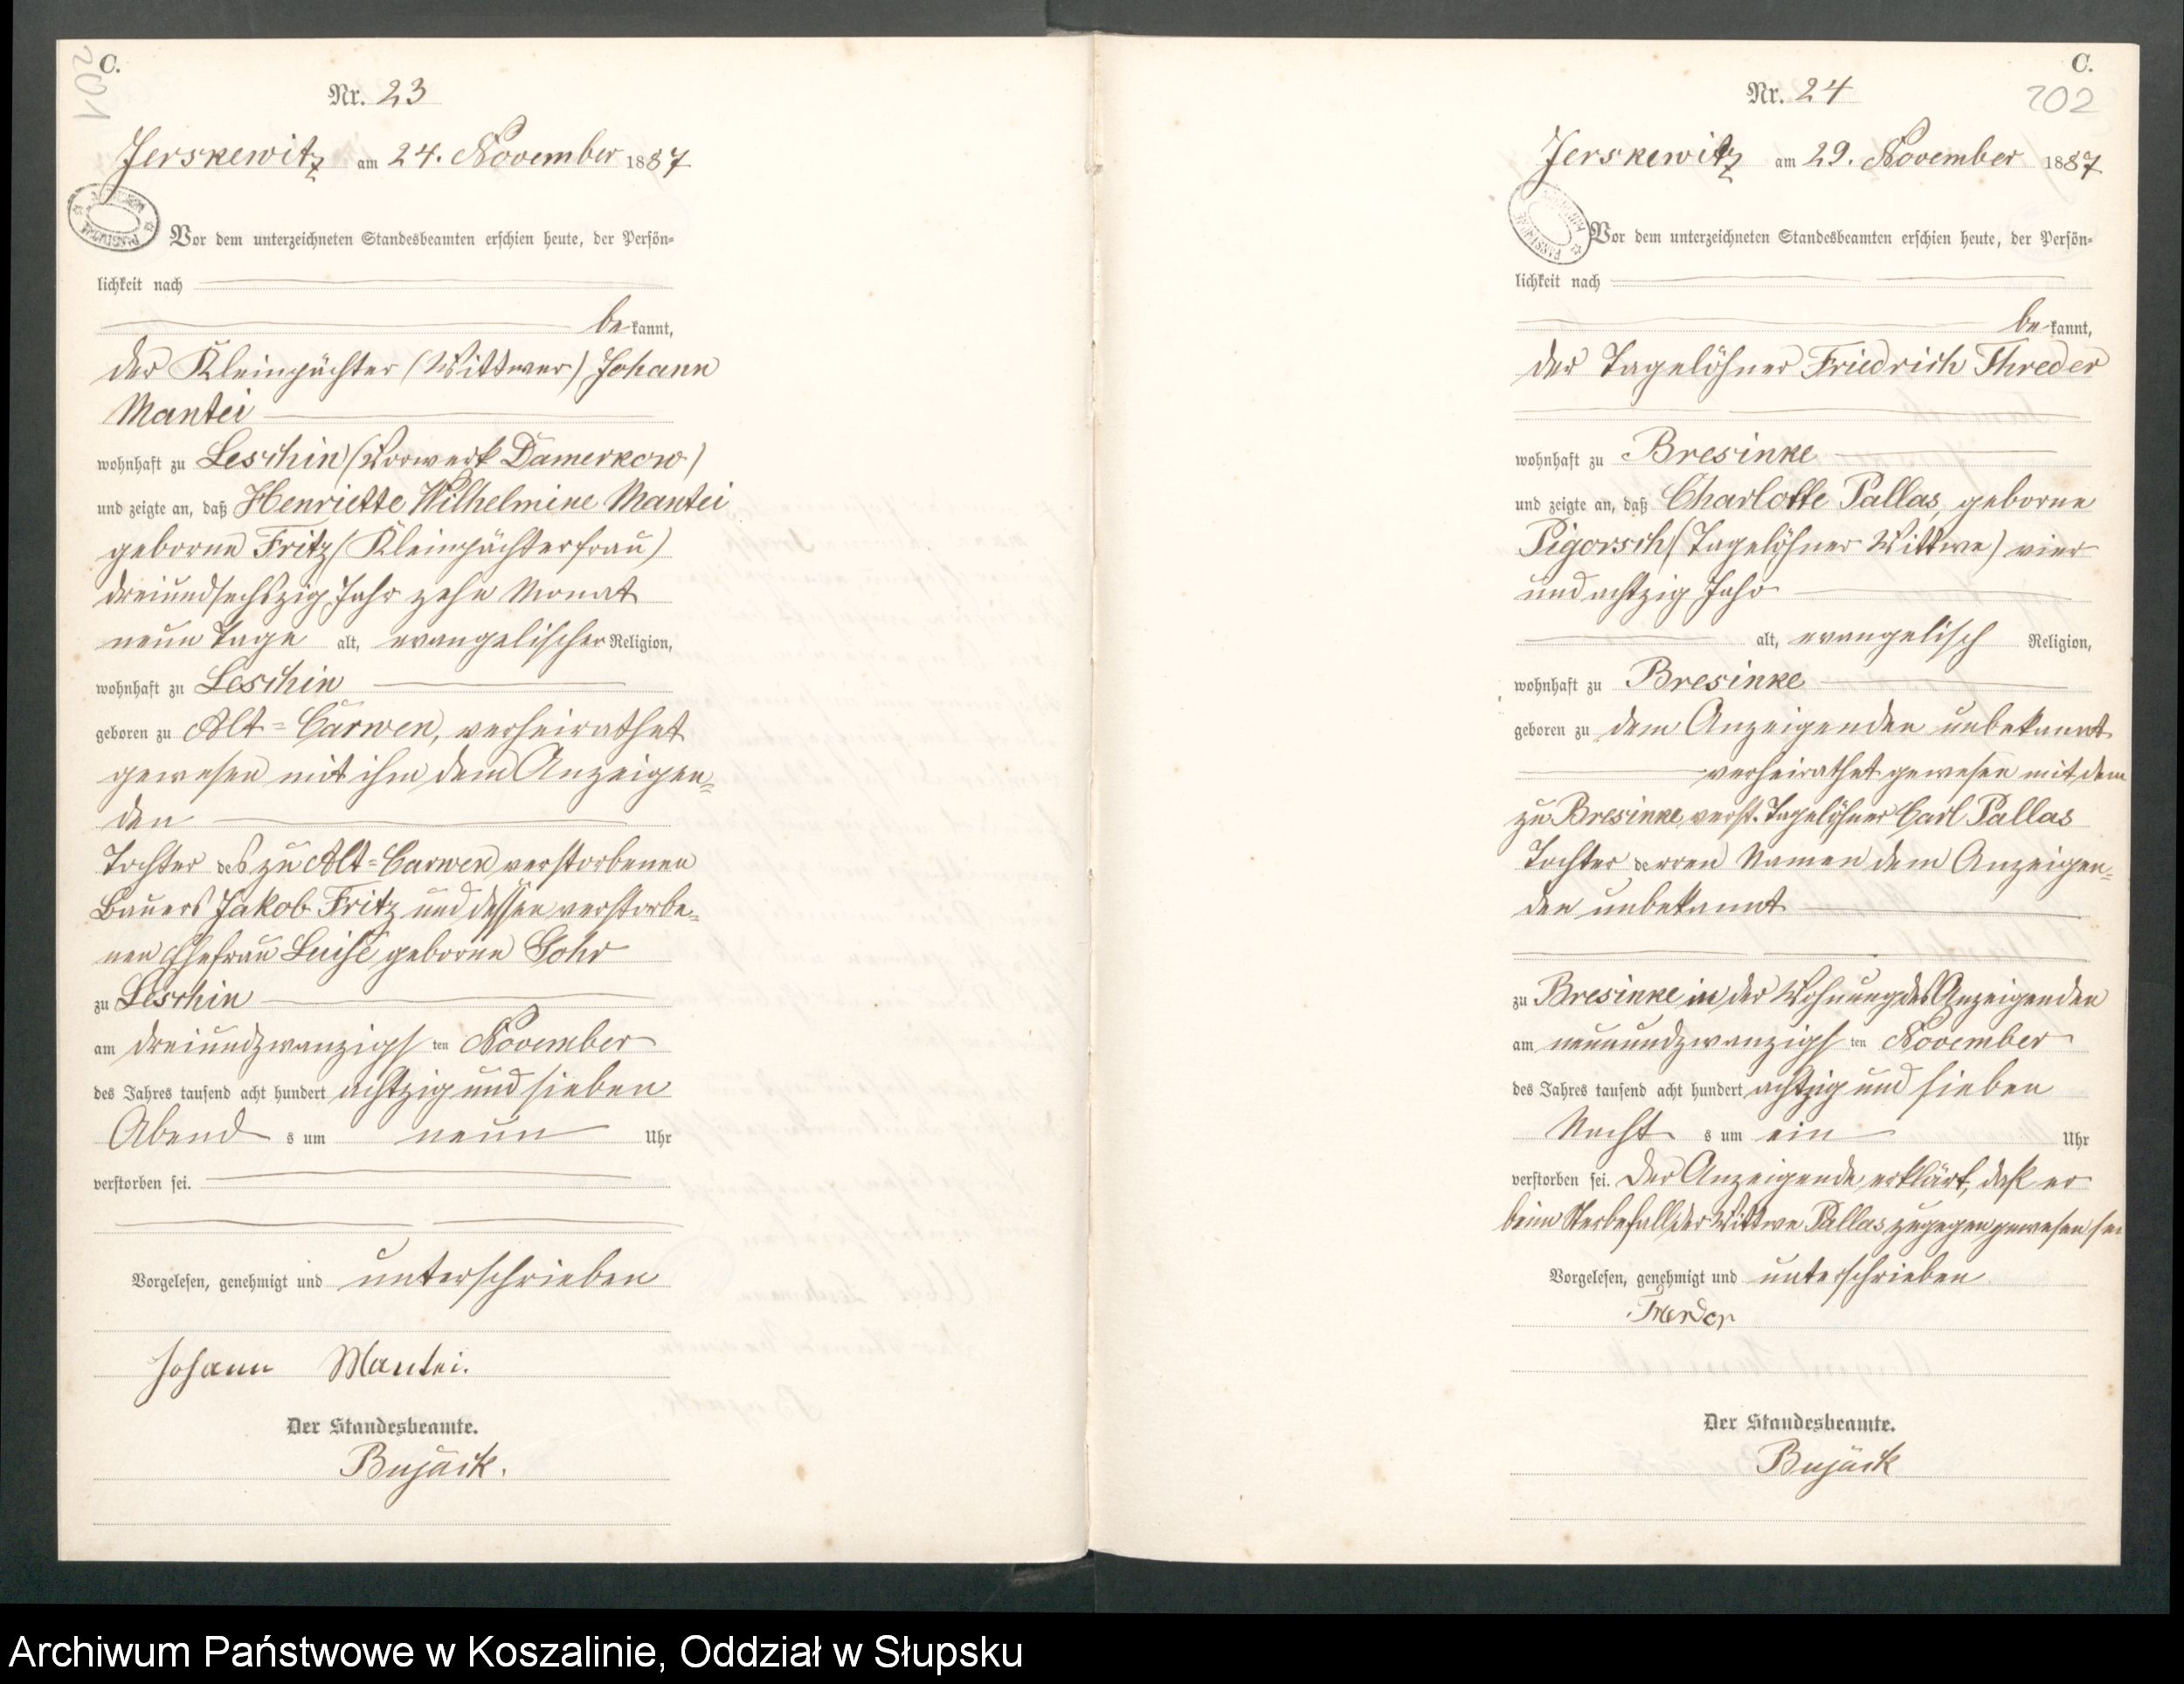 C.
201
Nr. 23
Jerskewitz am 24. November 1887
Vor dem unterzeichneten Standesbeamten erschien heute, der Persön-
lichkeit nach
bekannt,
der Kleinpächter (Wittwer) Johann
Mantei
wohnhaft zu Leschin (Vorwerk Damerkow)
und zeigte an, daß Henriette Wilhelmine Mantei
geborne Fritz (Kleinpächterfrau)
dreiundsechszig Jahr zehn Monat
neun Tage alt, evangelischer Religion,
wohnhaft zu Leschin
geboren zu Alt-Carwen, verheirathet
gewesen mit ihm dem Anzeigen-
den
Tochter des zu Alt-Carwen verstorbenen
Bauers Jakob Fritz und dessen verstorbe-
nen Ehefrau Luise geborne Gohr
zu Leschin
am dreiundzwanzigsten November
des Jahres tausend acht hundert achtzig und sieben
Abends um neun Uhr
verstorben sei.
Vorgelesen, genehmigt und unterschrieben
Johann Mantei.
Der Standesbeamte.
Bujack.
C.
202
Nr. 24
Jerskewitz am 29. November 1887
Vor dem unterzeichneten Standesbeamten erschien heute, der Persön-
lichkeit nach
bekannt,
der Tagelöhner Friedrich Threder
wohnhaft zu Bresinke
und zeigte an, daß Charlotte Pallas, geborne
Pigorsch (Tagelöhner Wittwe) vier
und achtzig Jahr
alt, evangelisch Religion,
wohnhaft zu Bresinke
geboren zu dem Anzeigenden unbekannt
verheirathet gewesen mit dem
zu Bresinke verst. Tagelöhner Carl Pallas
Tochter derren Namen dem Anzeigen-
den unbekannt
zu Bresinke in der Wohnung des Anzeigenden
am neunundzwanzigsten November
des Jahres tausend acht hundert achtzig und sieben
Nachts um ein Uhr
verstorben sei. Der Anzeigende erklärt, daß er
beim Sterbefall der Wittwe Pallas zugegen gewesen sei
Vorgelesen, genehmigt und unterschrieben
Der Standesbeamte.
Bujack
Archiwum Państwowe w Koszalinie, Oddział w Słupsku